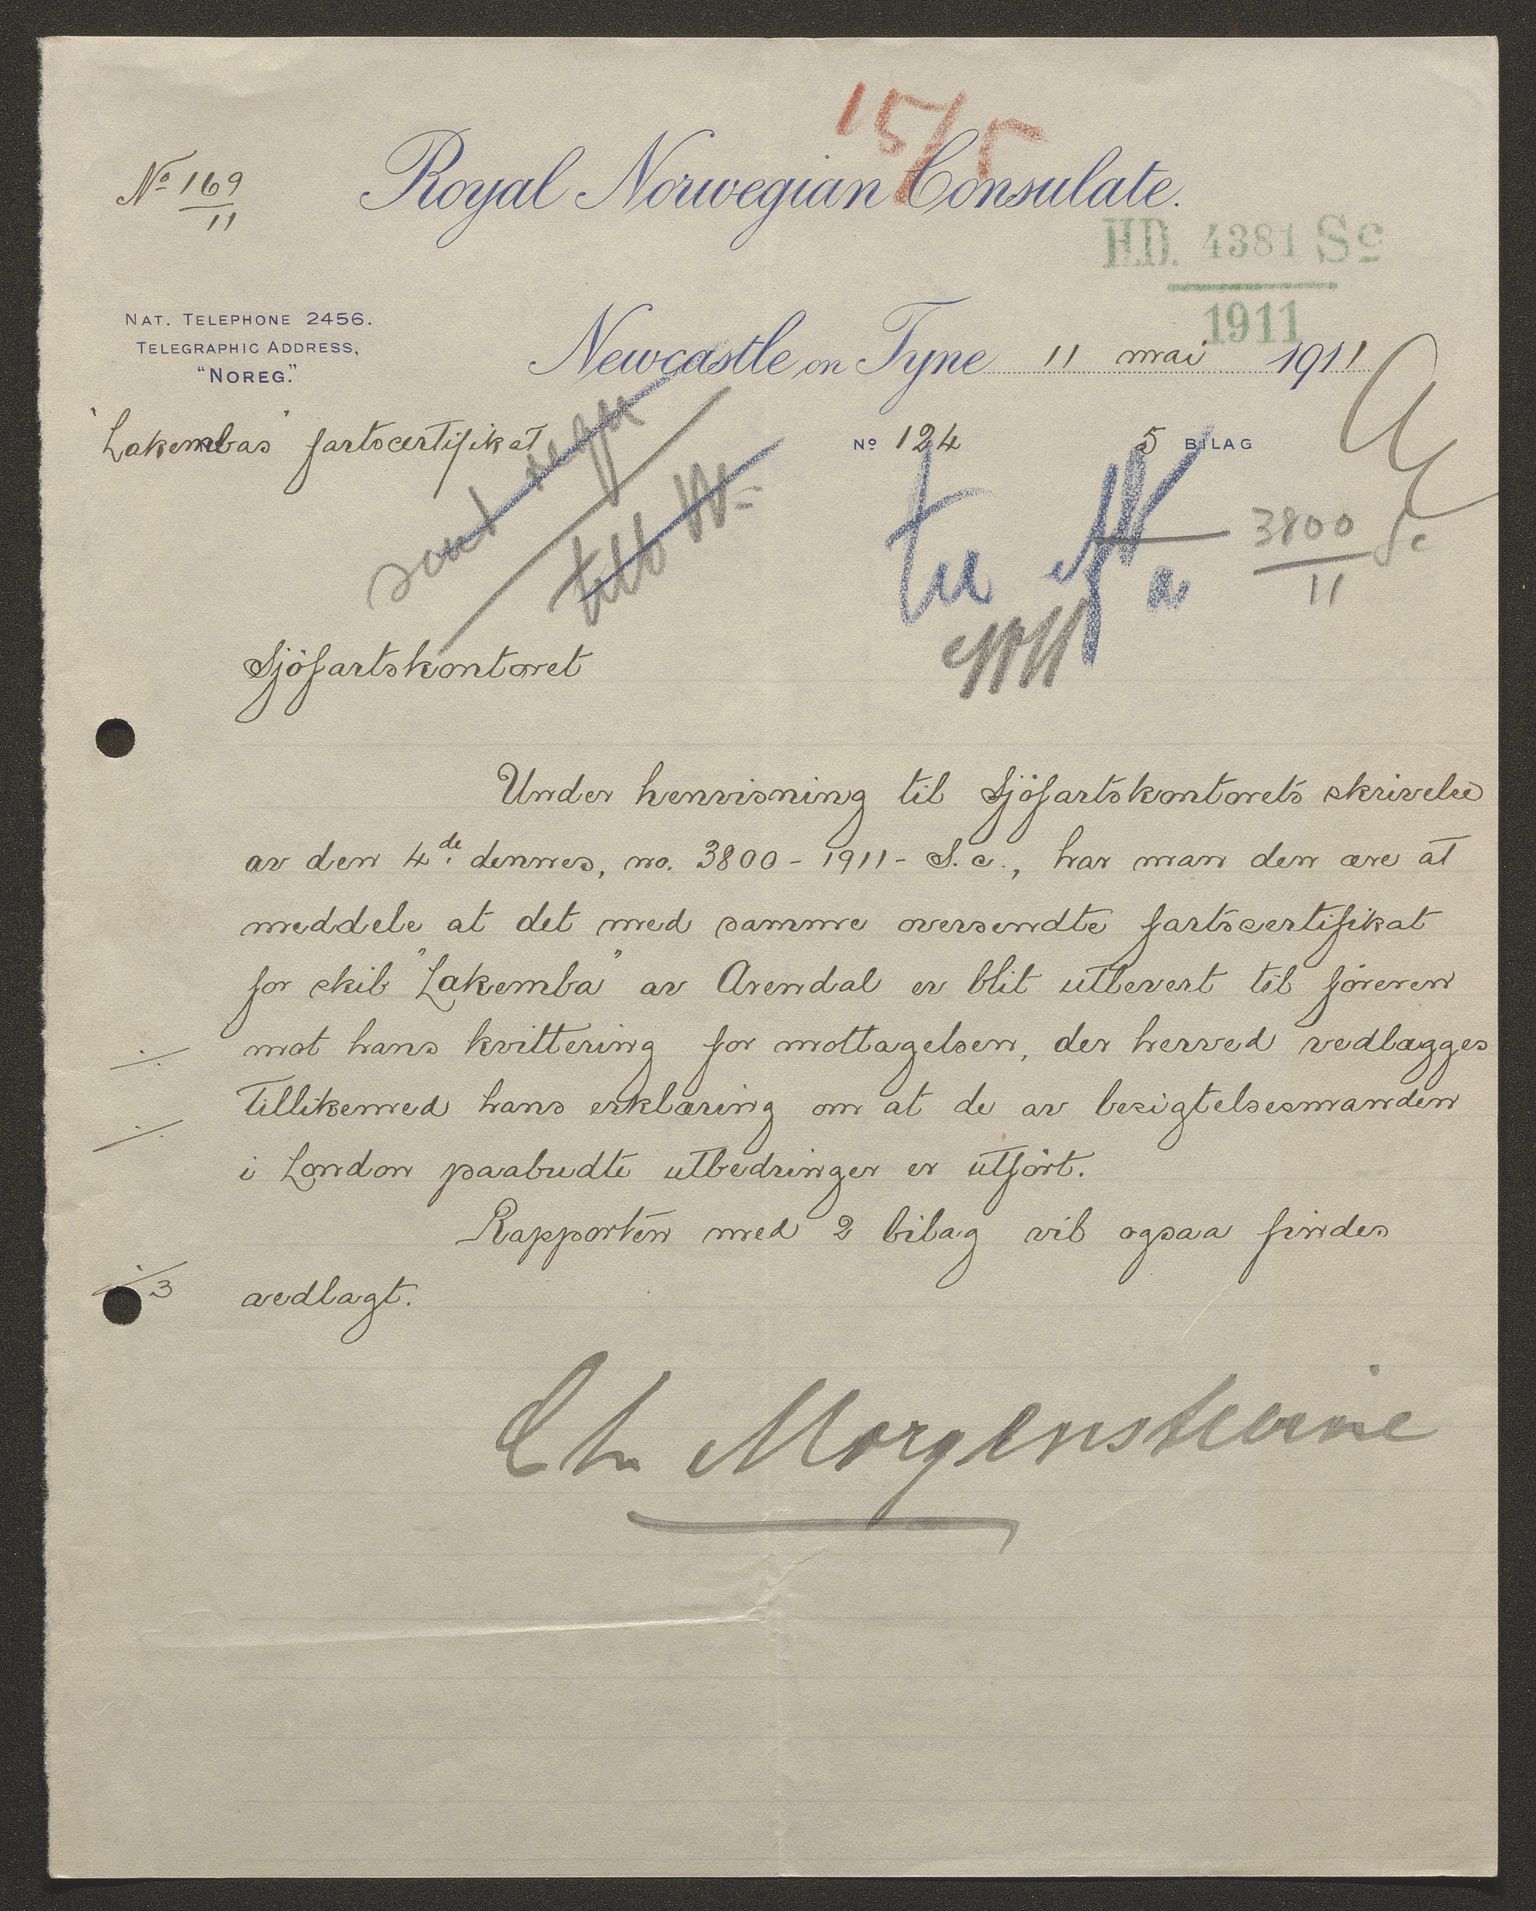 15/5
No 169
11
Royal Norwegian Consulate.
H.D. 4381 Sc
1911
NAT. TELEPHONE 2456.
TELEGRAPHIC ADDRESS,
"NOREG."
Newcastle on Tyne 11 mai 1911
"Lakembas" fartscertifikat
No 124 5 BILAG
3800 Sc
11
Sjöfartskontoret
Under henvisning til Sjöfartskontorets skrivelse
av den 4de. dennes, no. 3800 - 1911 - S.c., har man den ære at
meddele at det med samme oversendte fartscertifikat
for skib "Lakemba" av Arendal er blit utlevert til föreren
mot hans kvittering for mottagelsen, der herved vedlægges
tillikemed hans erklæring om at de av besigtelsesmanden
i London paabudte utbedringer er utfört.
Rapporten med 2 bilag vil ogsaa findes
./. 3 vedlagt.
Chr Morgenstierne